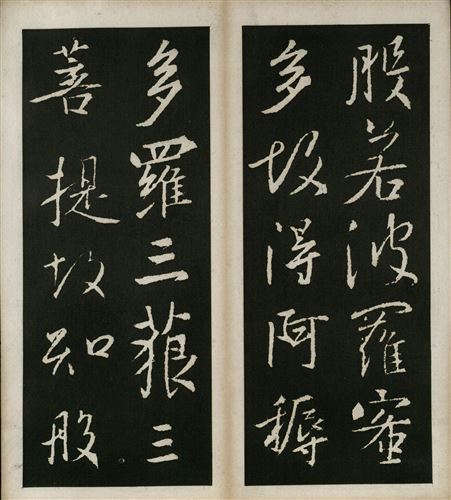 般若波羅蜜
多故得阿耨
多羅三藐三
菩提故知般